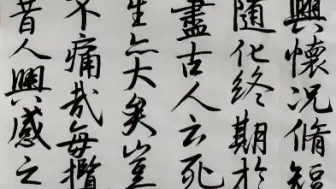 興懷況脩短
隨化終期於
盡古人云死
生亦大矣豈
不痛哉每攬
昔人興感之